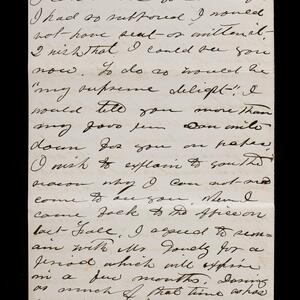 I had so suffered I would
not have sent or written it.
I wish that I could see you
now. To do so would be
"my supreme delight". I
would tell you more than
my poor pen can write
down for you on paper.
I wish to explain to you the
reason why I can not
come to see you. When I
came back to the office on
last Fall, I agreed to rem-
ain with Mr for a
period which will expire
in a few months. Losing
as much of that time as